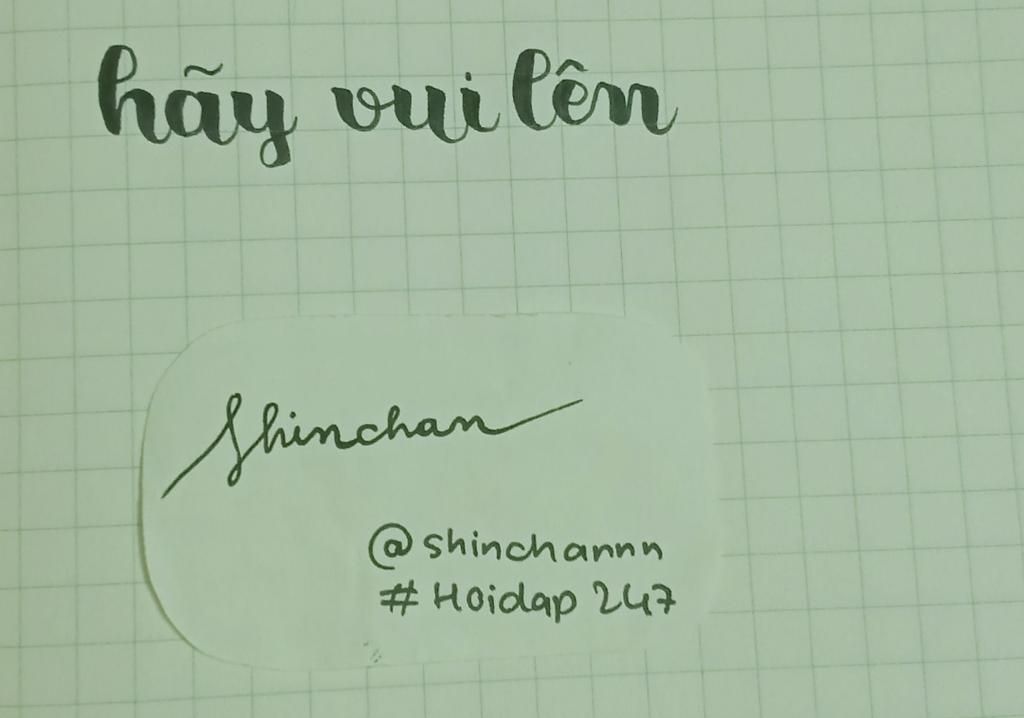 hãy vui lên
Shinchan
@shinchannn
#Hoidap 247